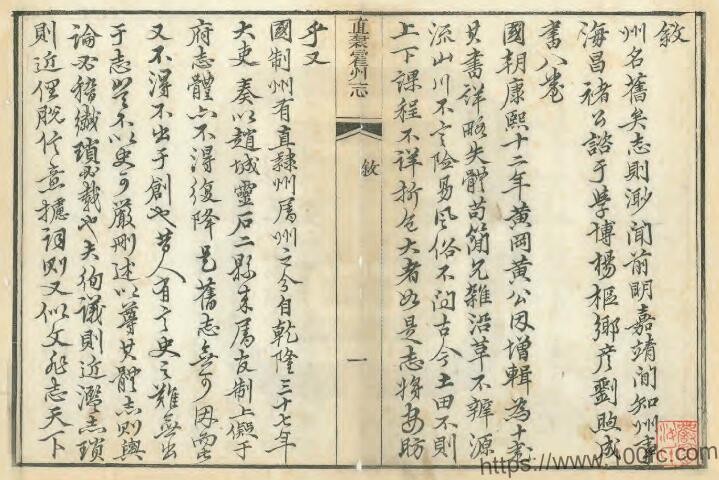 敘
州名舊矣志則渺聞前明嘉靖間知州事
海昌褚公諮于學博楊樞鄉彥劉煦成
書八卷
國朝康熙十二年黃岡黃公因增輯為十卷
其書詳略失體苟簡冗雜沿革不辨源
流山川不言險易風俗不問古今土田不則
上下課程不詳折色大者如是志將安昉
直隸霍州志
敘
一
乎又
國制州有直隸州屬州之分自乾隆三十七年
大吏奏以趙城靈石二縣來屬 制上儗于
府志體亦不得復降是舊志無可因
又不得不出于創也昔人有言史之難無出
于志豈不以史可嚴刪述以尊其體志則與
論必稽纖瑣必載也夫徇議則近濫志瑣
則近俚脫作意攄詞則又似文非志天下